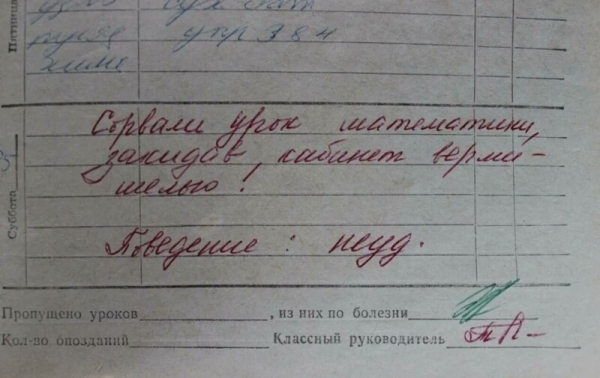 Пятница
упр 384
хими
Суббота
Сорвали урок математики,
закидав кабинет верми-
шелью!
Поведение: неуд.
Пропущено уроков , из них по болезни
Кол-во опозданий Классный руководитель